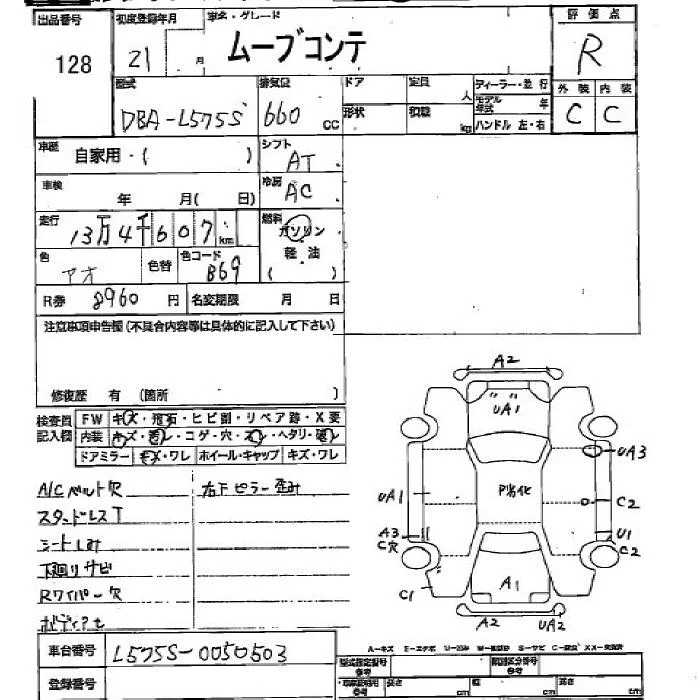 出品番号 初度登録年月 車名・グレード 評価点
128 21 月 ムーブコンテ R
型式 排気量 ドア 定員 人 ディーラー・並行 外装 内装
DBA-L575S 660 cc 形状 積載 kg モデル年式 年 C C
ハンドル 左・右
車歴 自家用・( ) シフト AT
車検 年 月( 日) 冷房 AC
走行 13万4千607km 燃料 ガソリン
色 アオ 色替 色コード B69 軽油 ( )
R券 8960円 名変期限 月 日
注意事項申告欄(不具合内容等は具体的に記入して下さい)
修復歴 有 (箇所 )
検査員記入欄 FW キズ・飛石・ヒビ割・リペア跡・X要
内装 キズ・汚レ・コゲ・穴・スレ・ヘタリ・破レ
ドアミラー キズ・ワレ ホイール・キャップ キズ・ワレ
A/Cベルト欠 右Fピラー歪み
スタッドレスT
シートしみ
下廻りサビ
Rワイパー欠
A2
UA1
UA3
UA1 P劣化 C2
A3 U1
C穴 C2
C1 A1
A2 UA2
車台番号 L575S-0050503
登録番号
型式指定番号 類別区分番号
長さ cm 幅 cm 高さ cm